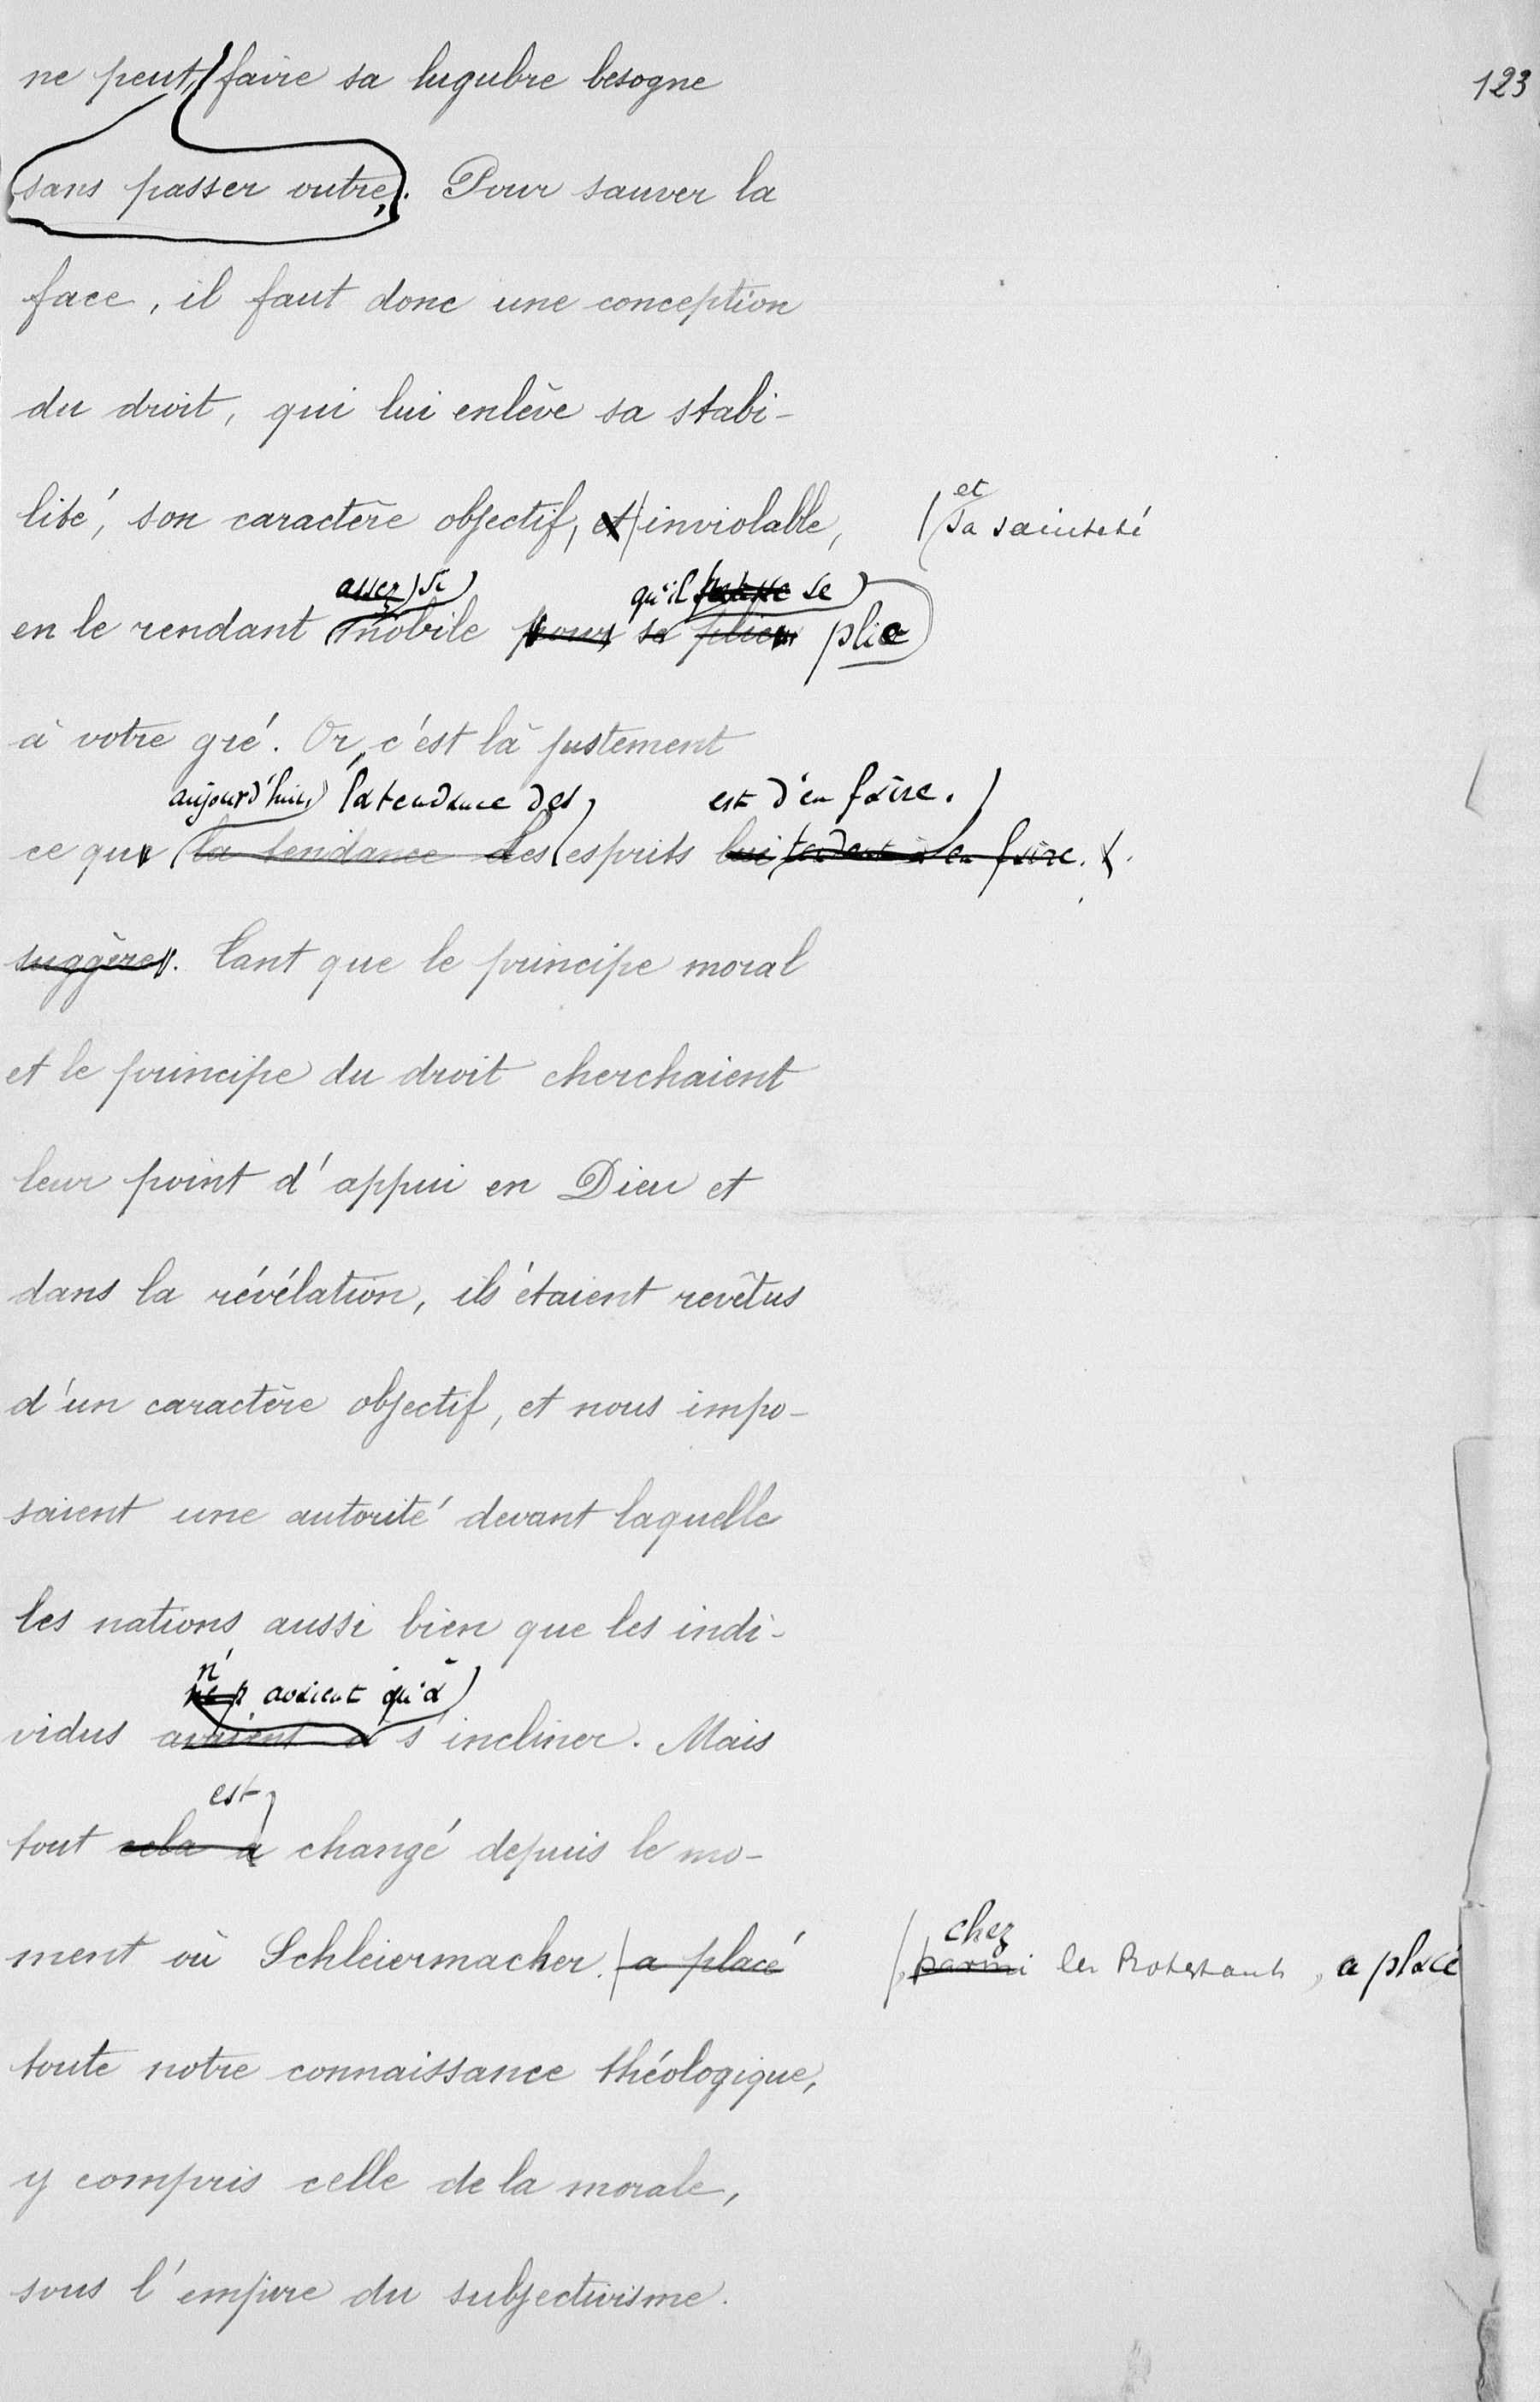 123
ne peut, faire sa lugubre besogne
sans passer outre,. Pour sauver la
face, il faut donc une conception
du droit, qui lui enlève sa stabi-
lité, son caractère objectif, et inviolable, et sa sainteté
assez si qu'il puisse se
en le rendant mobile pour se plier plie
à votre gré. Or, c'est là justement
aujourd'hui, la tendance des est d'en faire.
ce que la tendance des esprits lui tendent à en faire.
suggère. Tant que le principe moral
et le principe du droit cherchaient
leur point d'appui en Dieu et
dans la révélation, ils étaient revêtus
d'un caractère objectif, et nous impo-
saient une autorité devant laquelle
les nations aussi bien que les indi-
n' avaient qu'à
vidus avaient à s'incliner. Mais
est
tout cela a changé depuis le mo-
chez
ment où Schleiermacher. a placé , parmi les Protestants, a placé
toute notre connaissance théologique,
y compris celle de la morale,
sous l'empire du subjectivisme.